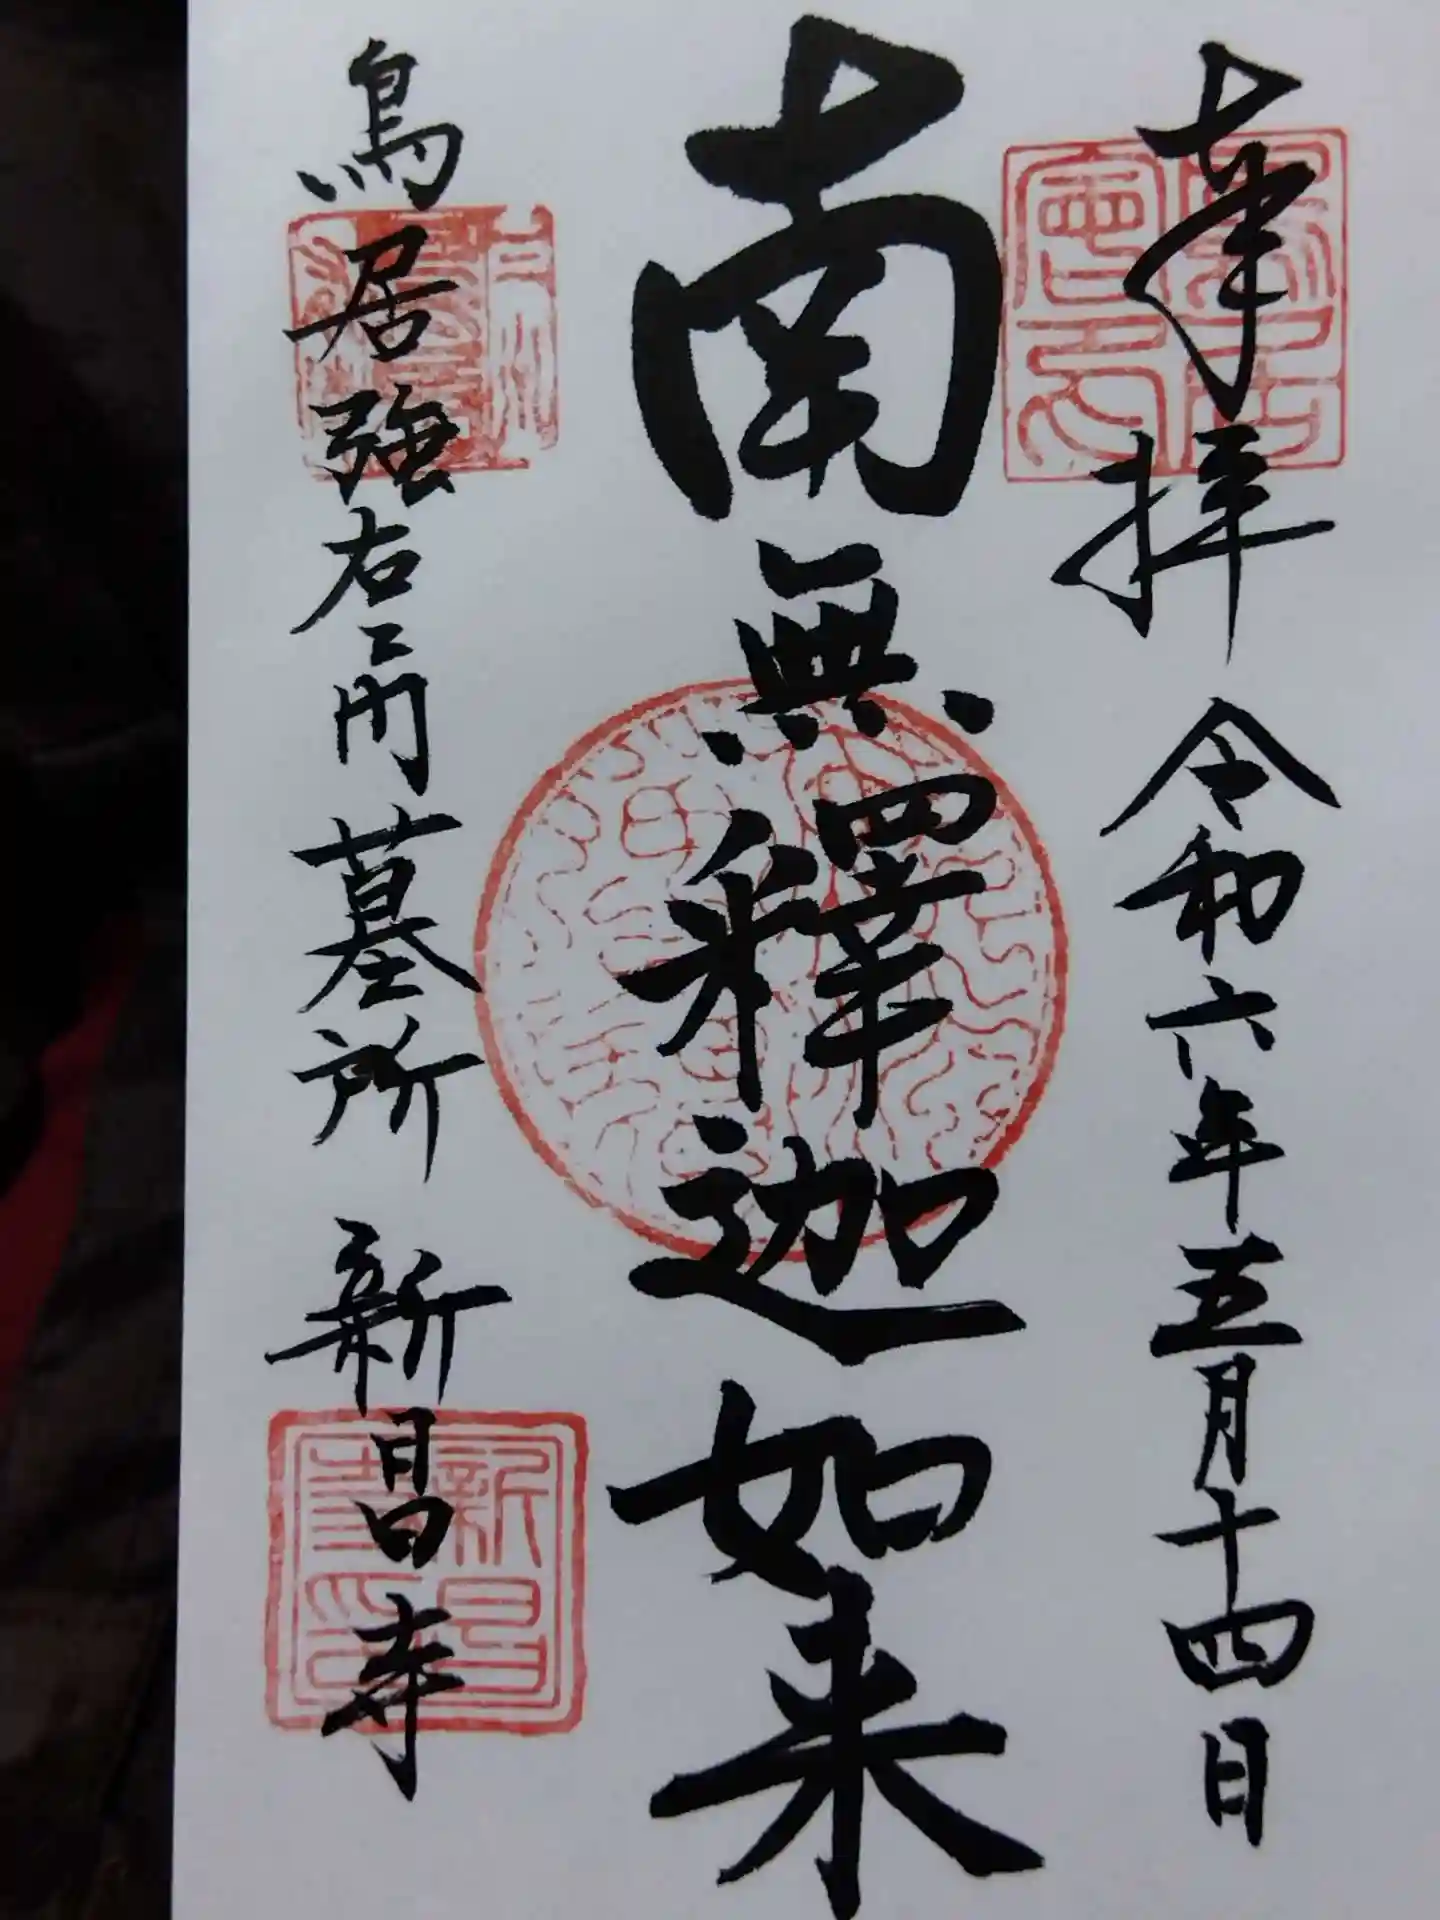 奉拝 令和六年五月十四日
南無釋迦如来
鳥居強右エ門墓所 新昌寺
新昌寺印